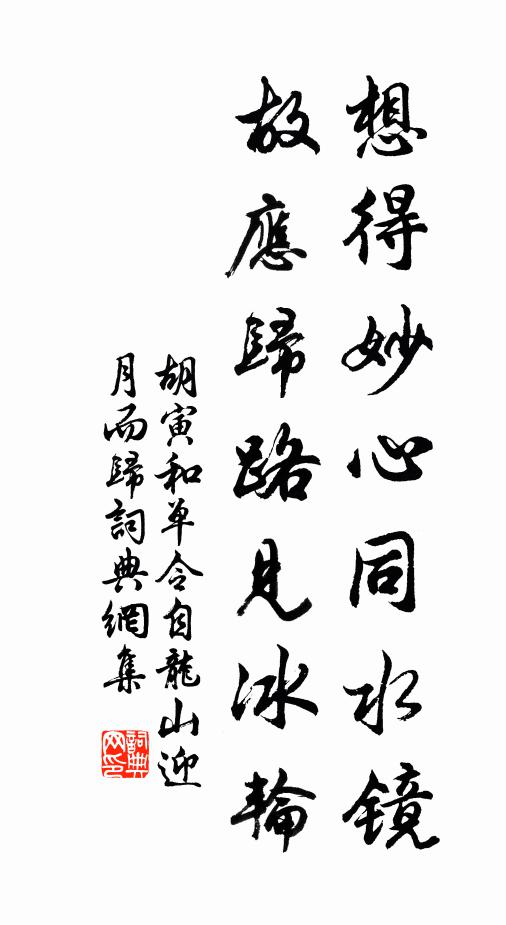 想得妙心同水鏡
故應歸路見冰輪
胡寅和单令自龍山迎
月而歸詞典網集
詞典
网印